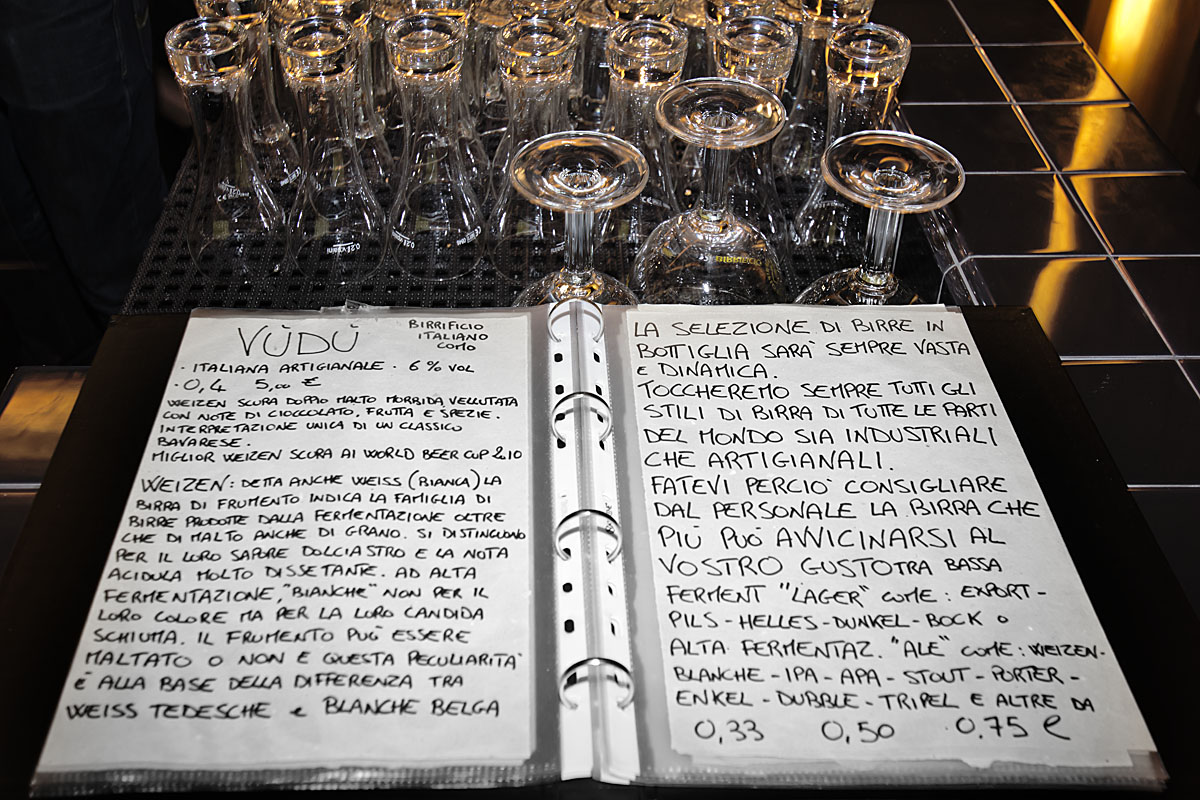 VÙDÙ
BIRRIFICIO
ITALIANO
COMO
· ITALIANA ARTIGIANALE · 6 % VOL
· 0,4 5,00 €
WEIZEN SCURA DOPPIO MALTO MORBIDA, VELLUTATA
CON NOTE DI CIOCCOLATO, FRUTTA E SPEZIE.
INTERPRETAZIONE UNICA DI UN CLASSICO
BAVARESE.
MIGLIOR WEIZEN SCURA AI WORLD BEER CUP 2010
WEIZEN: DETTA ANCHE WEISS (BIANCA) LA
BIRRA DI FRUMENTO INDICA LA FAMIGLIA DI
BIRRE PRODOTTE DALLA FERMENTAZIONE OLTRE
CHE DI MALTO ANCHE DI GRANO. SI DISTINGUONO
PER IL LORO SAPORE DOLCIASTRO E LA NOTA
ACIDULA MOLTO DISSETANTE. AD ALTA
FERMENTAZIONE, "BIANCHE" NON PER IL
LORO COLORE MA PER LA LORO CANDIDA
SCHIUMA. IL FRUMENTO PUÒ ESSERE
MALTATO O NON E QUESTA PECULIARITÀ
È ALLA BASE DELLA DIFFERENZA TRA
WEISS TEDESCHE e BLANCHE BELGA
LA SELEZIONE DI BIRRE IN
BOTTIGLIA SARÀ SEMPRE VASTA
E DINAMICA.
TOCCHEREMO SEMPRE TUTTI GLI
STILI DI BIRRA DI TUTTE LE PARTI
DEL MONDO SIA INDUSTRIALI
CHE ARTIGIANALI.
FATEVI PERCIÒ CONSIGLIARE
DAL PERSONALE LA BIRRA CHE
PIÙ PUÒ AVVICINARSI AL
VOSTRO GUSTO TRA BASSA
FERMENT "LAGER" COME: EXPORT-
PILS - HELLES - DUNKEL - BOCK o
ALTA FERMENTAZ. "ALE" COME: WEIZEN-
BLANCHE - IPA - APA - STOUT - PORTER -
ENKEL - DUBBLE - TRIPEL E ALTRE DA
0,33 0,50 0,75 ℓ